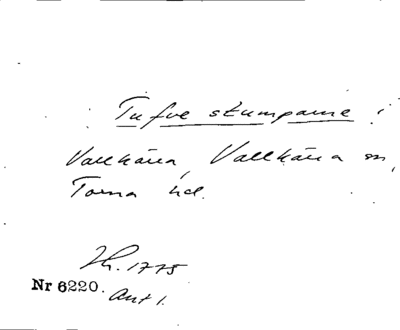 Tufve stumparne i
Vallkärra, Vallkärra sn,
Torna hd.
Lh. 1775
Nr 6220.
Ant 1.